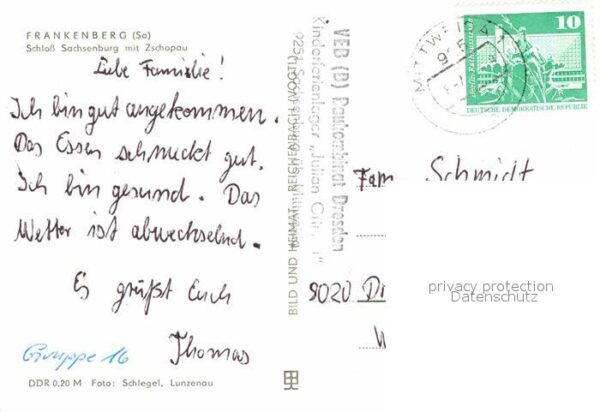 FRANKENBERG (Sa)
Schloß Sachsenburg mit Zschopau
Liebe Familie!
Ich bin gut angekommen.
Das Essen schmeckt gut.
Ich bin gesund. Das
Wetter ist abwechselnd.
Es grüßt Euch
Thomas
Gruppe 16
DDR 0,20 M Foto: Schlegel, Lunzenau
BILD UND HEIMAT REICHENBACH (VOGTL)
VEB (B) Baukombinat Dresden
Kinderferienlager „Julian
MITTWEIDA
925
10
DEUTSCHE DEMOKRATISCHE REPUBLIK
Fam Schmidt
9020
privacy protection
Datenschutz